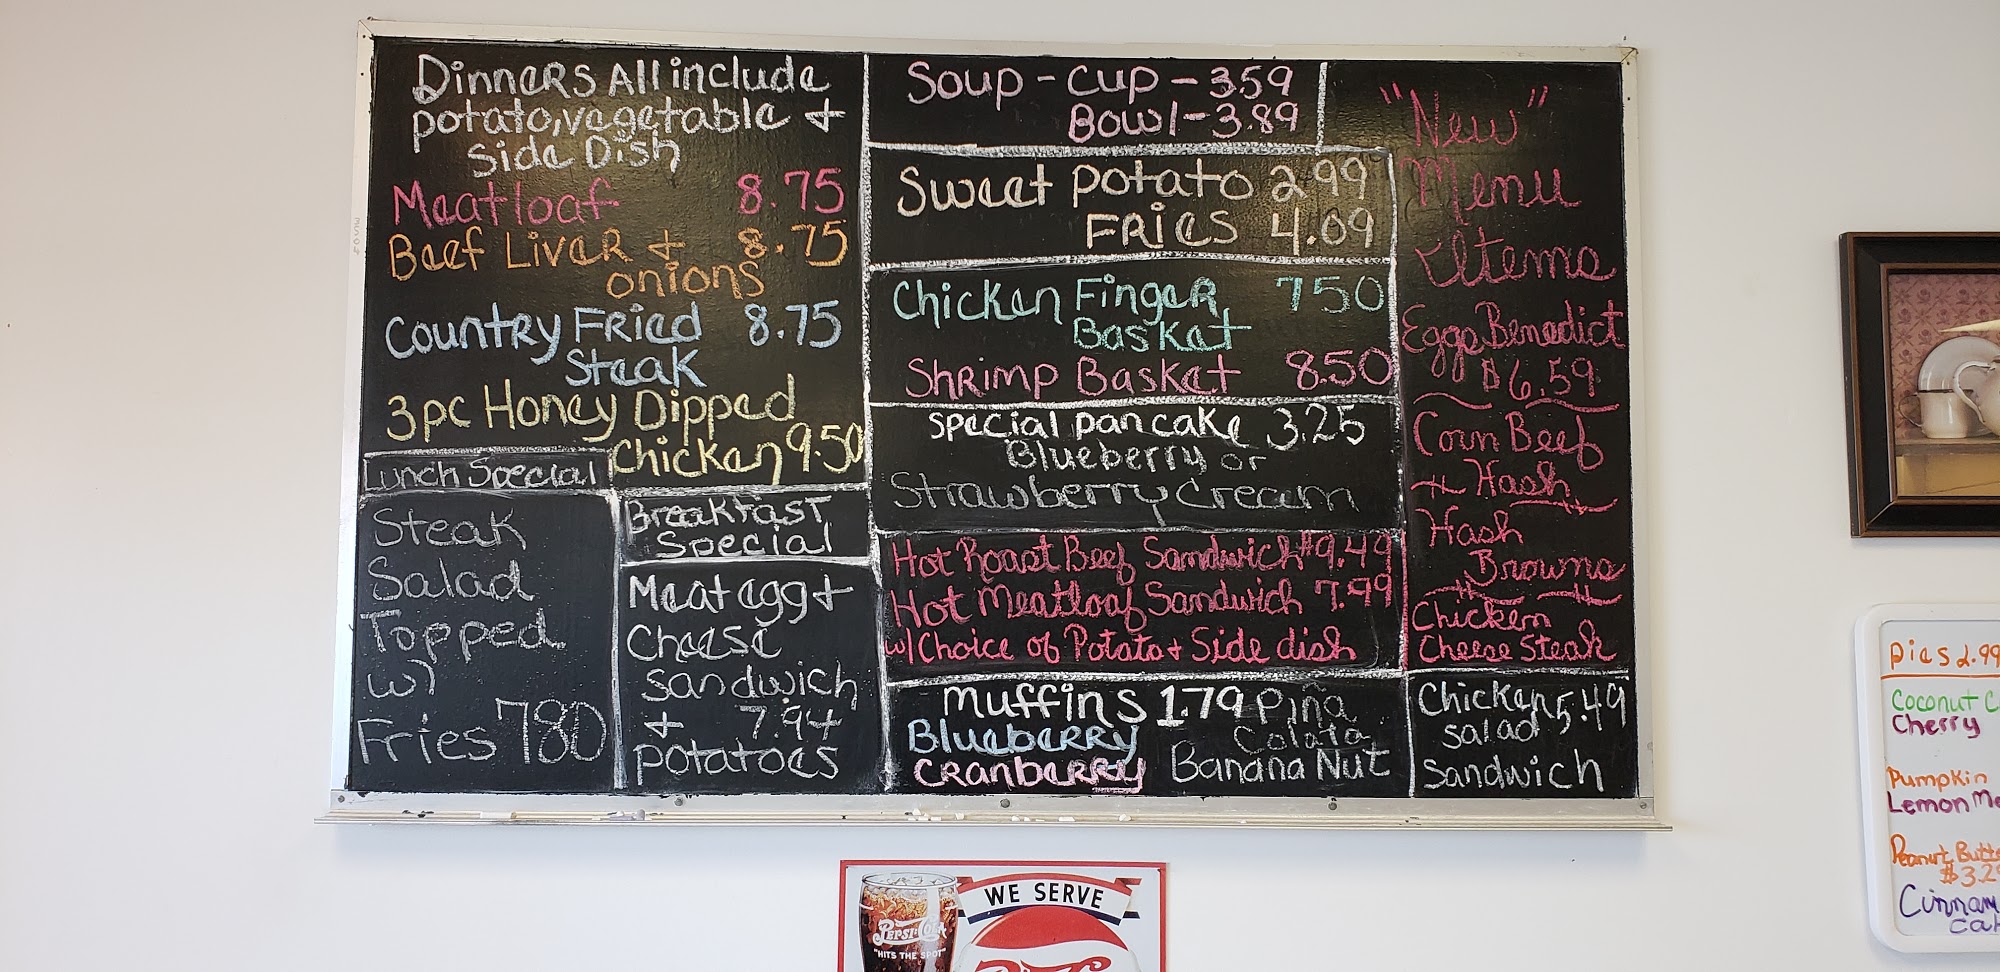 Dinners All include
potato, vegetable +
Side Dish
Meatloaf 8.75
Beef Liver + 8.75
onions
Country Fried 8.75
Steak
3pc Honey Dipped
Chicken 9.50
Lunch Special
Steak
Salad
Topped
w/
Fries 780
Breakfast
Special
Meat egg +
Cheese
Sandwich
+ 7.94
Potatoes
Soup - Cup - 3.59
Bowl - 3.89
Sweet Potato 2.99
Fries 4.09
Chicken Finger 750
Basket
Shrimp Basket 8.50
Special Pancake 3.25
Blueberry or
Strawberry Cream
Hot Roast Beef Sandwich $9.49
Hot Meatloaf Sandwich 7.99
w/ Choice of Potato + Side dish
Muffins 1.79 Piña
Blueberry Colata
Cranberry Banana Nut
"New"
Menu
Items
Eggs Benedict
$6.59
Corn Beef
+ Hash
Hash
Browns
Chicken
Cheese Steak
Chicken 5.49
Salad
Sandwich
Pies 2.99
Coconut C
Cherry
Pumpkin
Lemon Me
Peanut Butte
$3.29
Cinnam
Cak
WE SERVE
PEPSI-COLA
"HITS THE SPOT"